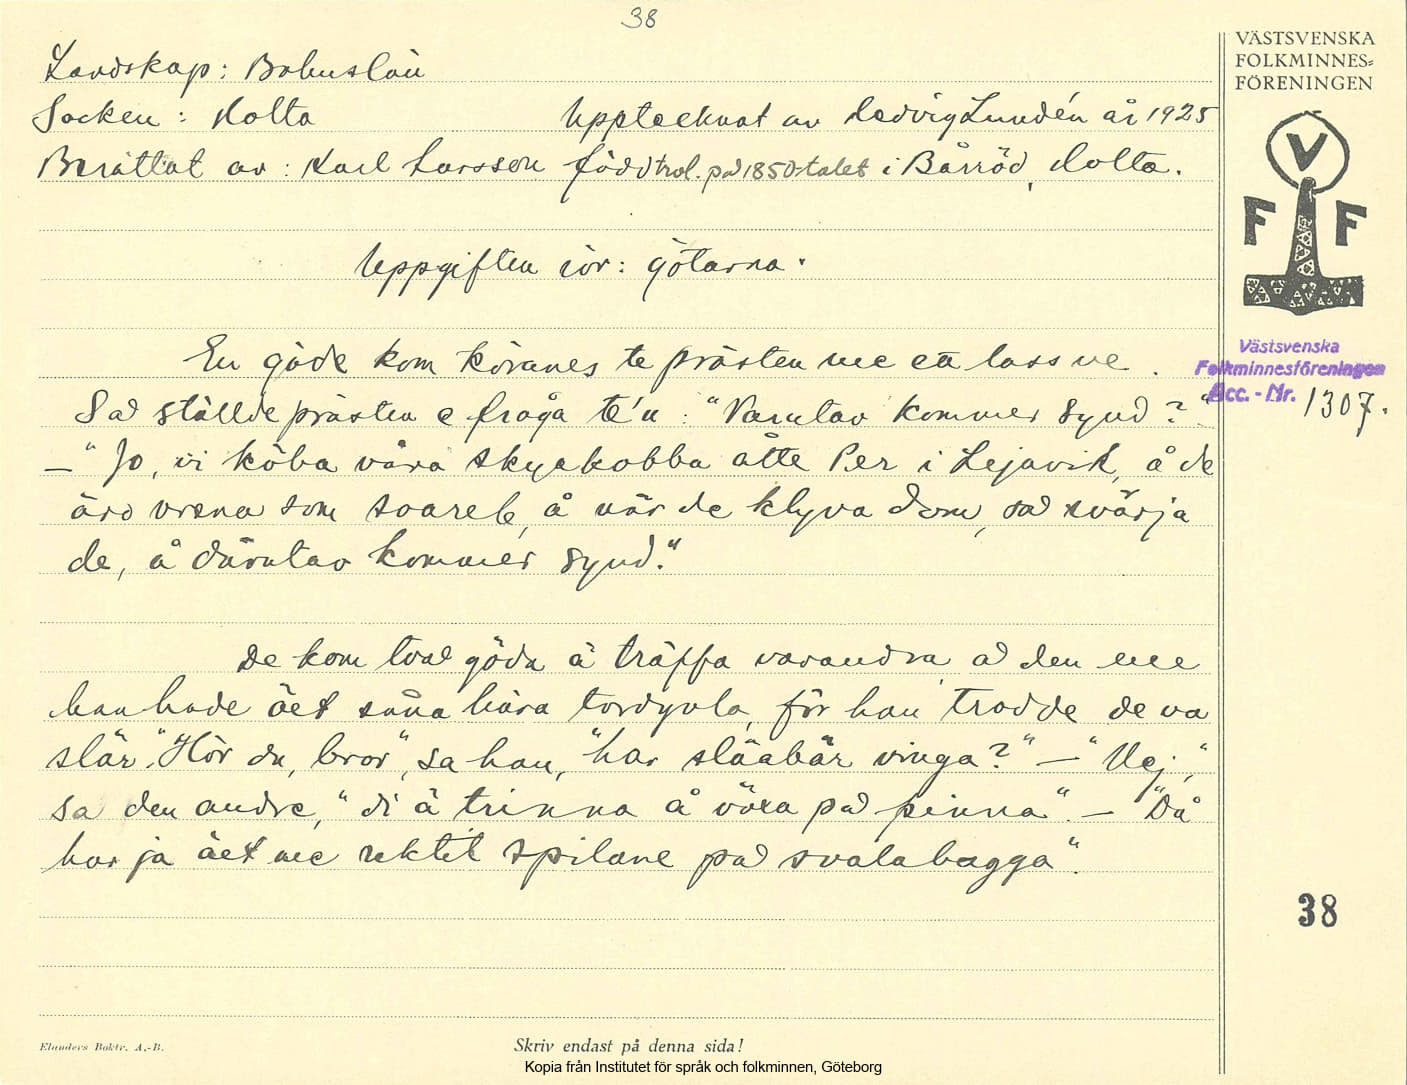 38
VÄSTSVENSKA
FOLKMINNES=
FÖRENINGEN
Landskap: Bohuslän
Socken: Holta Upptecknat av Hedvig Lundén år 1925
Berättat av: Karl Larsson född trol. på 1850-talet i Bårröd, Holta.
V
F F
Uppgiften rör: götarna.
En göde kom köranes te prästen me ett lass ve.
Så ställde prästen e fråga te'n: "Varutav kommer synd?"
—"Jo, vi köba våra skyakobba åtte Per i Lejavik, å de
äro vrena som, å när de klyva dom, så svärja
de, å därutav kommer synd."
De kom två göda å träffa varandra, å den ene
han hade äet såna hära tordyvla, för han trodde de va
slär. "Hör du, bror", sa han, "har släabär vinga?" — "Nej,"
sa den andre, "di ä trinna å växa på pinna". — "Då
har ja äet me spilane på svalabagga".
Västsvenska
Folkminnesföreningen
Acc. - Nr. 1307.
38
Elanders Boktr. A.-B.
Skriv endast på denna sida!
Kopia från Institutet för språk och folkminnen, Göteborg